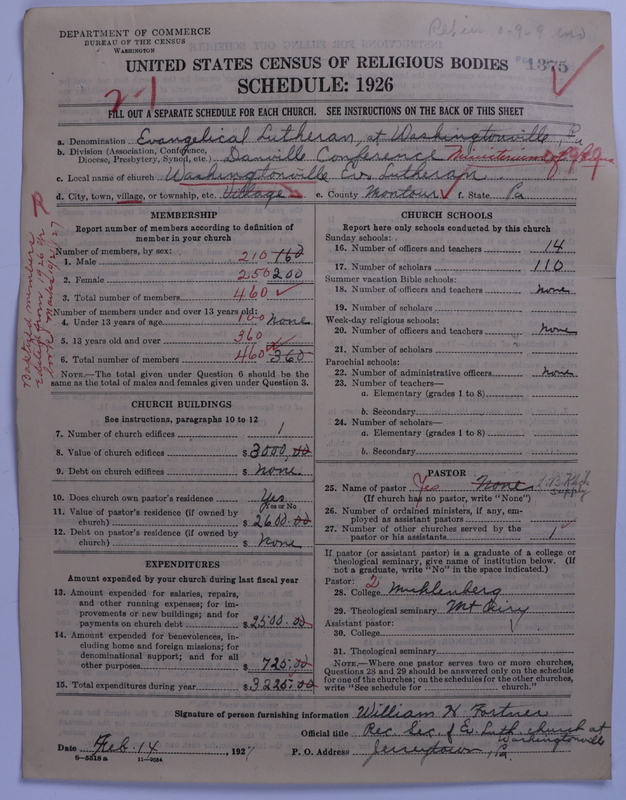 DEPARTMENT OF COMMERCE
BUREAU OF THE CENSUS
WASHINGTON
1375
UNITED STATES CENSUS OF RELIGIOUS BODIES
SCHEDULE: 1926
2-1
FILL OUT A SEPARATE SCHEDULE FOR EACH CHURCH. SEE INSTRUCTIONS ON THE BACK OF THIS SHEET
a. Denomination Evangelical Lutheran, at Washingtonville, Pa
b. Division (Association, Conference,
Diocese, Presbytery, Synod, etc.) Danville Conference Ministerium of
c. Local name of church Washingtonville Ev. Lutheran
d. City, town, village, or township, etc. Village e. County Montour f. State Pa
MEMBERSHIP
Report number of members according to definition of
member in your church
Number of members, by sex:
1. Male 210 160
2. Female 250 200
3. Total number of members 460
Number of members under and over 13 years old:
4. Under 13 years of age 100 None
5. 13 years old and over 360
6. Total number of members 460 360
NOTE.—The total given under Question 6 should be
same as the total of males and females given under Question 3.
CHURCH BUILDINGS
See instructions, paragraphs 10 to 12
7. Number of church edifices 1
8. Value of church edifices $ 3000.00
9. Debt on church edifices $ None
10. Does church own pastor's residence Yes
Yes or No
11. Value of pastor's residence (if owned by
church) $ 2600.00
12. Debt on pastor's residence (if owned by
church) $ None
EXPENDITURES
Amount expended by your church during last fiscal year
13. Amount expended for salaries, repairs,
and other running expenses; for im-
provements or new buildings; and for
payments on church debt $ 2500.00
14. Amount expended for benevolences, in-
cluding home and foreign missions; for
denominational support; and for all
other purposes $ 725.00
15. Total expenditures during year $ 3225.00
CHURCH SCHOOLS
Report here only schools conducted by this church
Sunday schools:
16. Number of officers and teachers 14
17. Number of scholars 110
Summer vacation Bible schools:
18. Number of officers and teachers None
19. Number of scholars
Week-day religious schools:
20. Number of officers and teachers None
21. Number of scholars
Parochial schools:
22. Number of administrative officers None
23. Number of teachers—
a. Elementary (grades 1 to 8)
b. Secondary
24. Number of scholars—
a. Elementary (grades 1 to 8)
b. Secondary
PASTOR
25. Name of pastor Yes None
supply
(If church has no pastor, write "None")
26. Number of ordained ministers, if any, em-
ployed as assistant pastors
27. Number of other churches served by the
pastor or his assistants 1
If pastor (or assistant pastor) is a graduate of a college or
theological seminary, give name of institution below. (If
not a graduate, write "No" in the space indicated.)
Pastor: 2
28. College Muhlenberg
29. Theological seminary Mt Airy
Assistant pastor:
30. College
31. Theological seminary
NOTE.—Where one pastor serves two or more churches,
Questions 28 and 29 should be answered only on the schedule
for one of the churches; on the schedules for the other churches,
write "See schedule for church."
Signature of person furnishing information William H Fortner
Official title Rec. Sec. of Ev. Luth. church at
Washingtonville
Date Feb. 14, 1927 P. O. Address Jerseytown, Pa.
8-5318a 11-9054